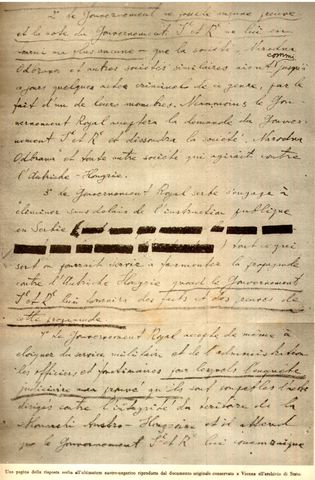 2° le Gouvernement ne possède aucune preuve
et la note du Gouvernement I et R ne lui en
fournit non plus aucune – que la société Narodna
commis
Odbrana et autres sociétés similaires aient jusqu'à
ce jour quelques actes criminels de ce genre, par le
fait d'un de leurs membres. Néanmoins le Gou-
vernement Royal acceptera la demande du Gouver-
nement I et R et dissoudra la société Narodna
Odbrana et toute autre société qui agirait contre
l'Autriche-Hongrie.
3° le Gouvernement Royal serbe s'engage à
éliminer sans délais de l'instruction publique
en Serbie
tout ce qui
sert ou pourrait servir à fomenter la propagande
contre l'Autriche Hongrie quand le Gouvernement
I et R lui fournira des faits et des preuves de
cette propagande
4° Le Gouvernement Royal accepte de même à
éloigner du service militaire et de l'administration
les officiers et fonctionnaires pour lesquels l'enquête
judiciaire aura prouvé qu'ils sont coupables d'actes
dirigés contre l'intégrité du territoire de la
Monarchie Austro-Hongroise et il attend
que le Gouvernement I et R lui communique
Una pagina della risposta serba all'ultimatum austro-ungarico riprodotta dal documento originale conservato a Vienna all'archivio di Stato.